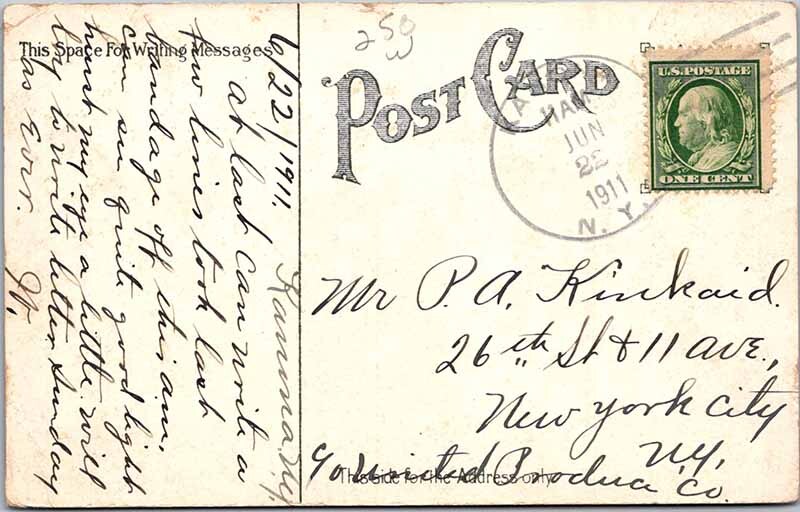 This Space For Writing Messages
6/22/1911.
At last can write a
few lines took last
bandage off this am.
can see quite good light
hurt my eye a little will
try to write letter Sunday
as ever.
250
W
POST CARD
HAM
JUN
22
1911
N. Y.
U.S. POSTAGE
ONE CENT
Mr P. A. Kinkaid.
26th St & 11 ave.,
New York City
N.Y.
c/o United Produce Co.
This side for the Address only